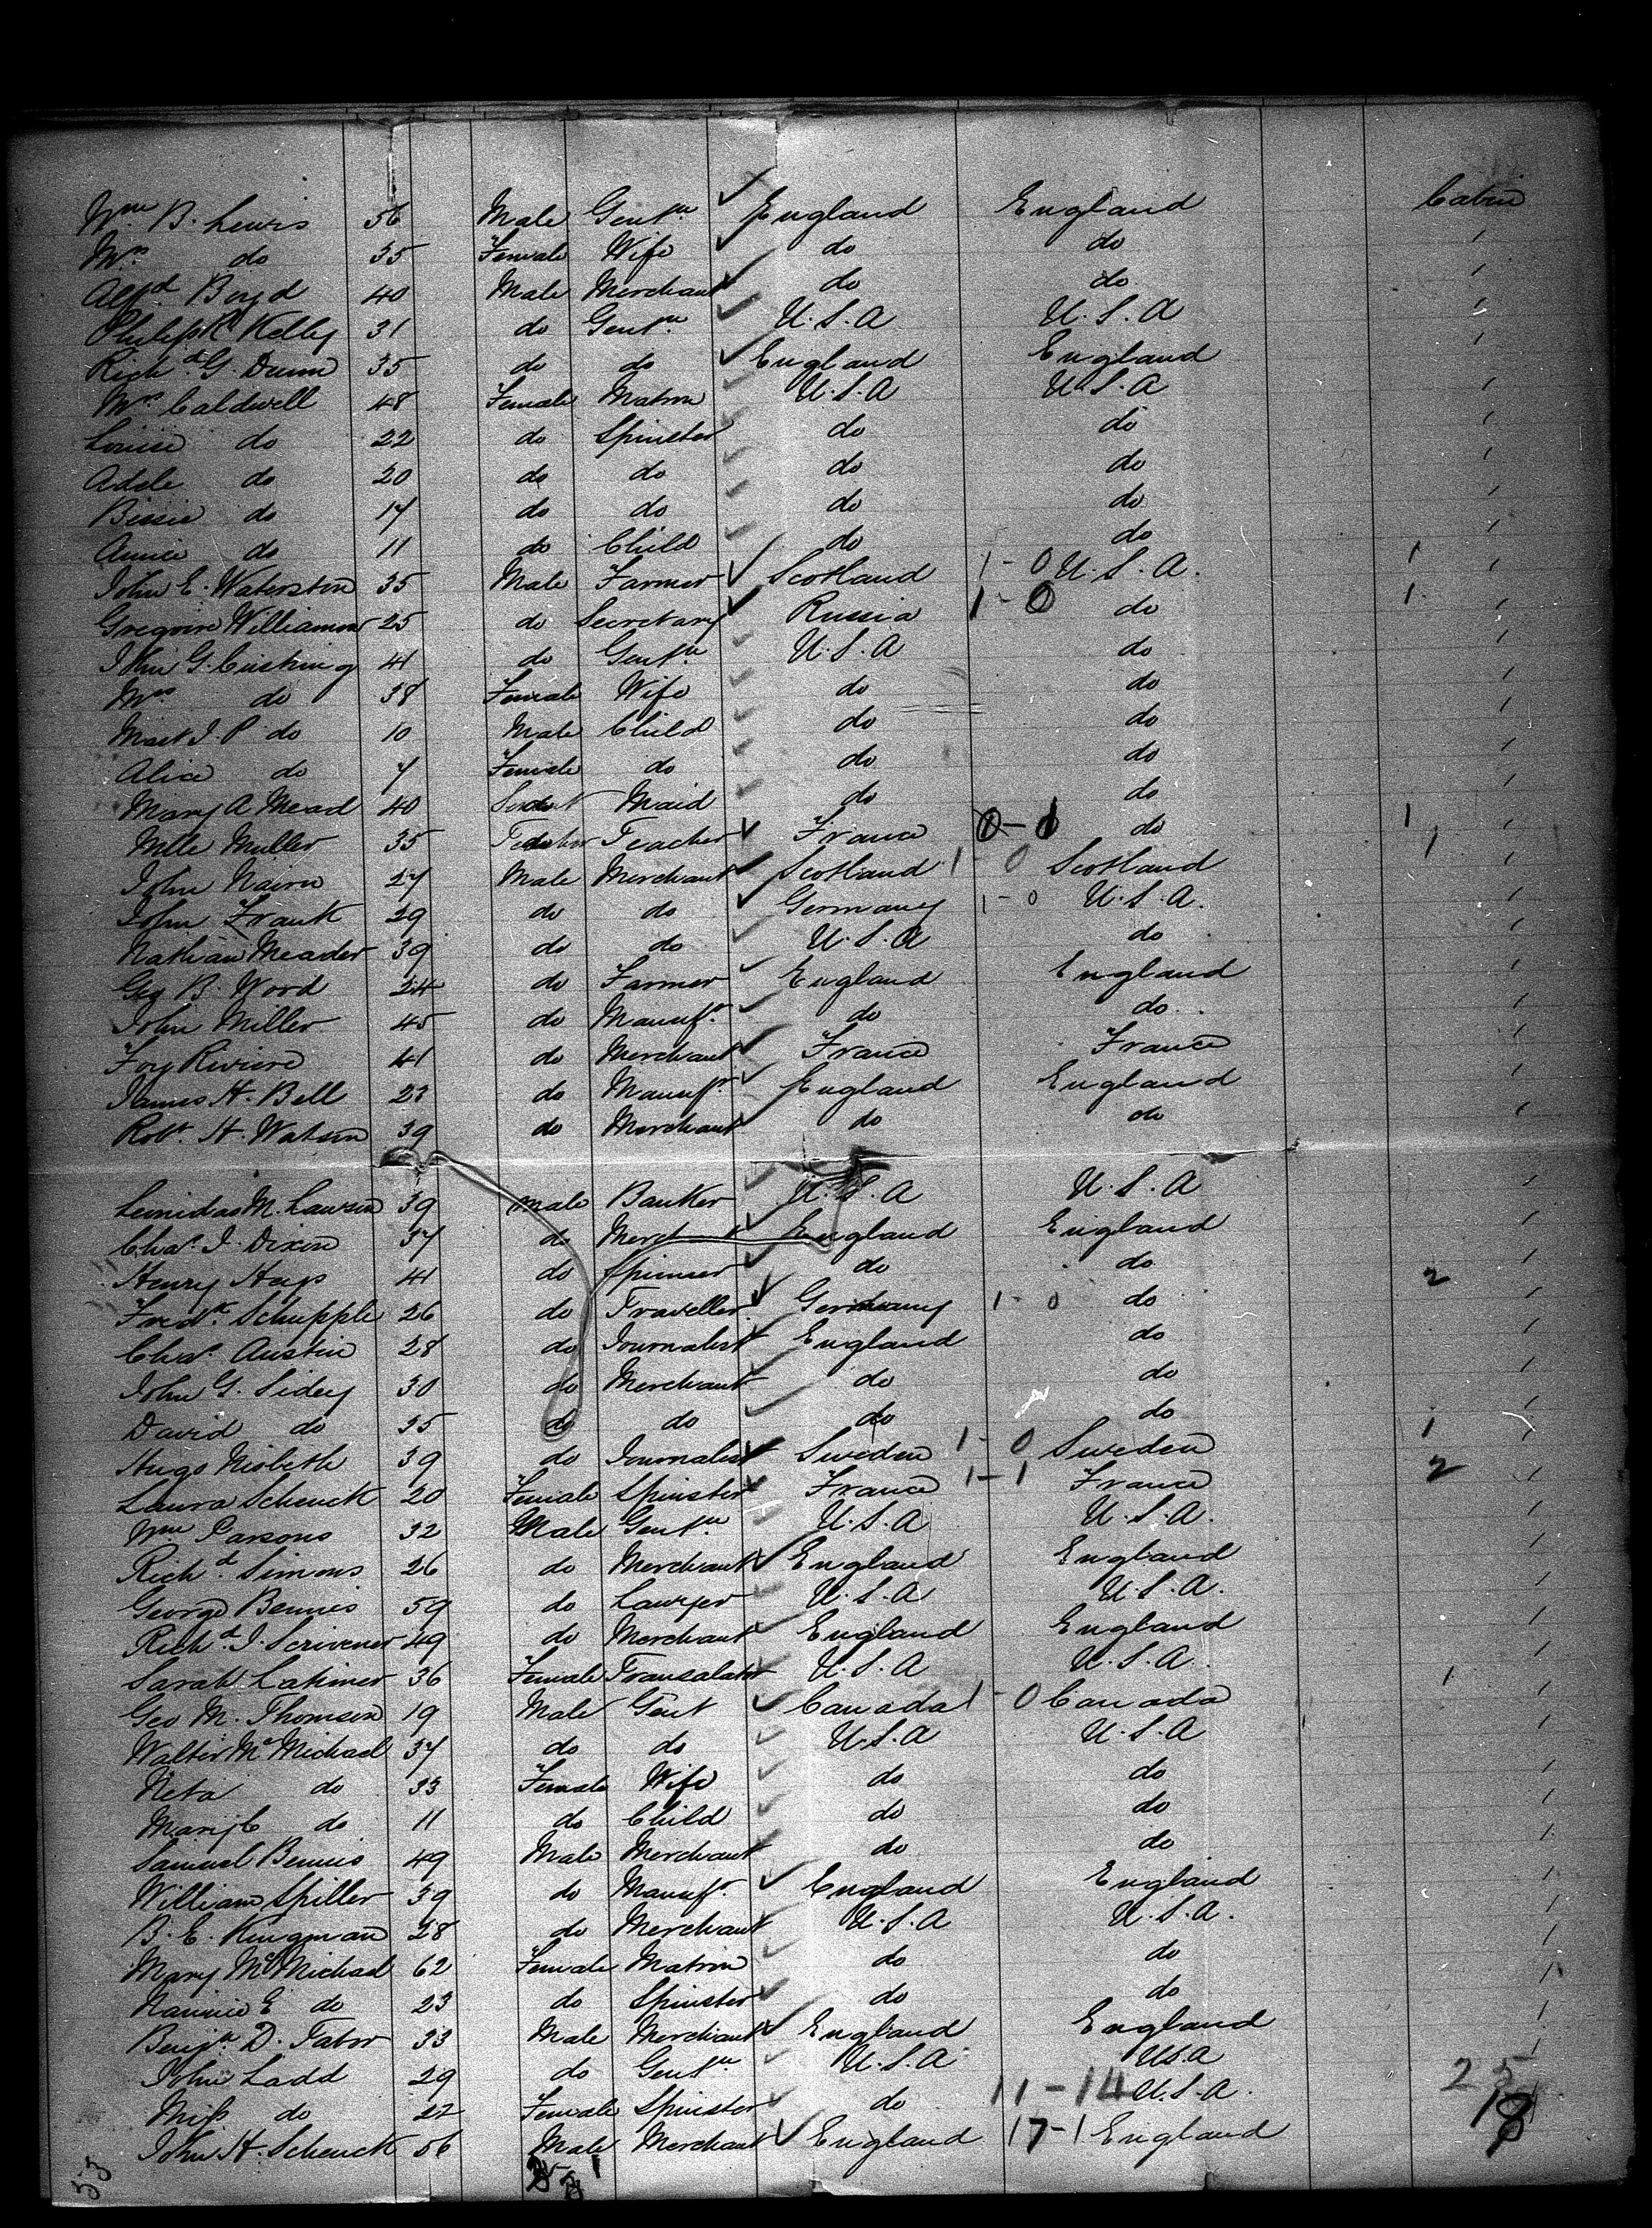 Wm. B. Lewis 56 Male Gentn. England England Cabin
Mrs. do 35 Female Wife do do
Alfd Boyd 40 Male Merchant do do
Philip R Kelly 31 do Gentn. U.S.A U.S.A
Richd. G. Dunn 35 do do England England
Mrs. Caldwell 48 Female Matron U.S.A U.S.A
Louise do 22 do Spinster do do
Adele do 20 do do do do
Bessie do 17 do do do do
Annie do 11 do Child do do
John E. Waterston 35 Male Farmer Scotland 1-0 U.S.A. 1
Gregoire Williamson 25 do Secretary Russia 1-0 do 1
John G. Cushing 41 do Gentn. U.S.A do
Mrs do 38 Female Wife do do
Mast J. P do 10 Male Child do do
Alice do 7 Female do do do
Mary A Mead 40 Maid do do
Mlle Muller 35 Teacher France 0-1 do 1
John Nairn 27 Male Merchant Scotland 1-0 Scotland 1
John Frank 29 do do Germany 1-0 U.S.A.
Nathan Meader 39 do do U.S.A do
Geo B. Word 24 do Farmer England England
John Miller 45 do Manufr. do do
Foy Riviere 41 do Merchant France France
James H. Bell 23 do Manufr. England England
Robt. H. Watson 39 do Merchant do do
Leonidas M. Lawson 39 male Banker U.S.A U.S.A
Chas. J. Dixon 37 do Merchant England England
Henry Hays 41 do Spinner do do
Fredk. Schupple 26 do Traveller Germany 1-0 do 2
Chas. Austin 28 do Journalist England do
John G. Sidey 30 do Merchant do do
David do 35 do do do do
Hugo Nisbeth 39 do Journalist Sweden 1-0 Sweden 1
Laura Schenck 20 Female Spinster France 1-1 France 2
Wm Parsons 32 Male Gentn. U.S.A U.S.A.
Richd. Simons 26 do Merchant England England
George Bemis 59 do Lawyer U.S.A U.S.A.
Richd. J. Scrivener 49 do Merchant England England
Sarah Latimer 36 Female Transalator U.S.A U.S.A.
Geo M. Thomson 19 Male Gent Canada 1-0 Canada 1
Walter McMichael 37 do do U.S.A U.S.A
Neta do 33 Female Wife do do
Mary C do 11 do Child do do
Samuel Bemis 49 Male Merchant do do
William Spiller 39 do Manufr. England England
B. E. Kingman 28 do Merchant U.S.A U.S.A.
Mary McMichael 62 Female Matron do do
Nannie E do 23 do Spinster do do
Benjn. D. Tabor 33 Male Merchant England England
John Ladd 29 do Gentn. U.S.A USA
Miss do 22 Female Spinster do 11-14 U.S.A. 25
John H. Schenck 56 Male Merchant England 17-1 England 18
53